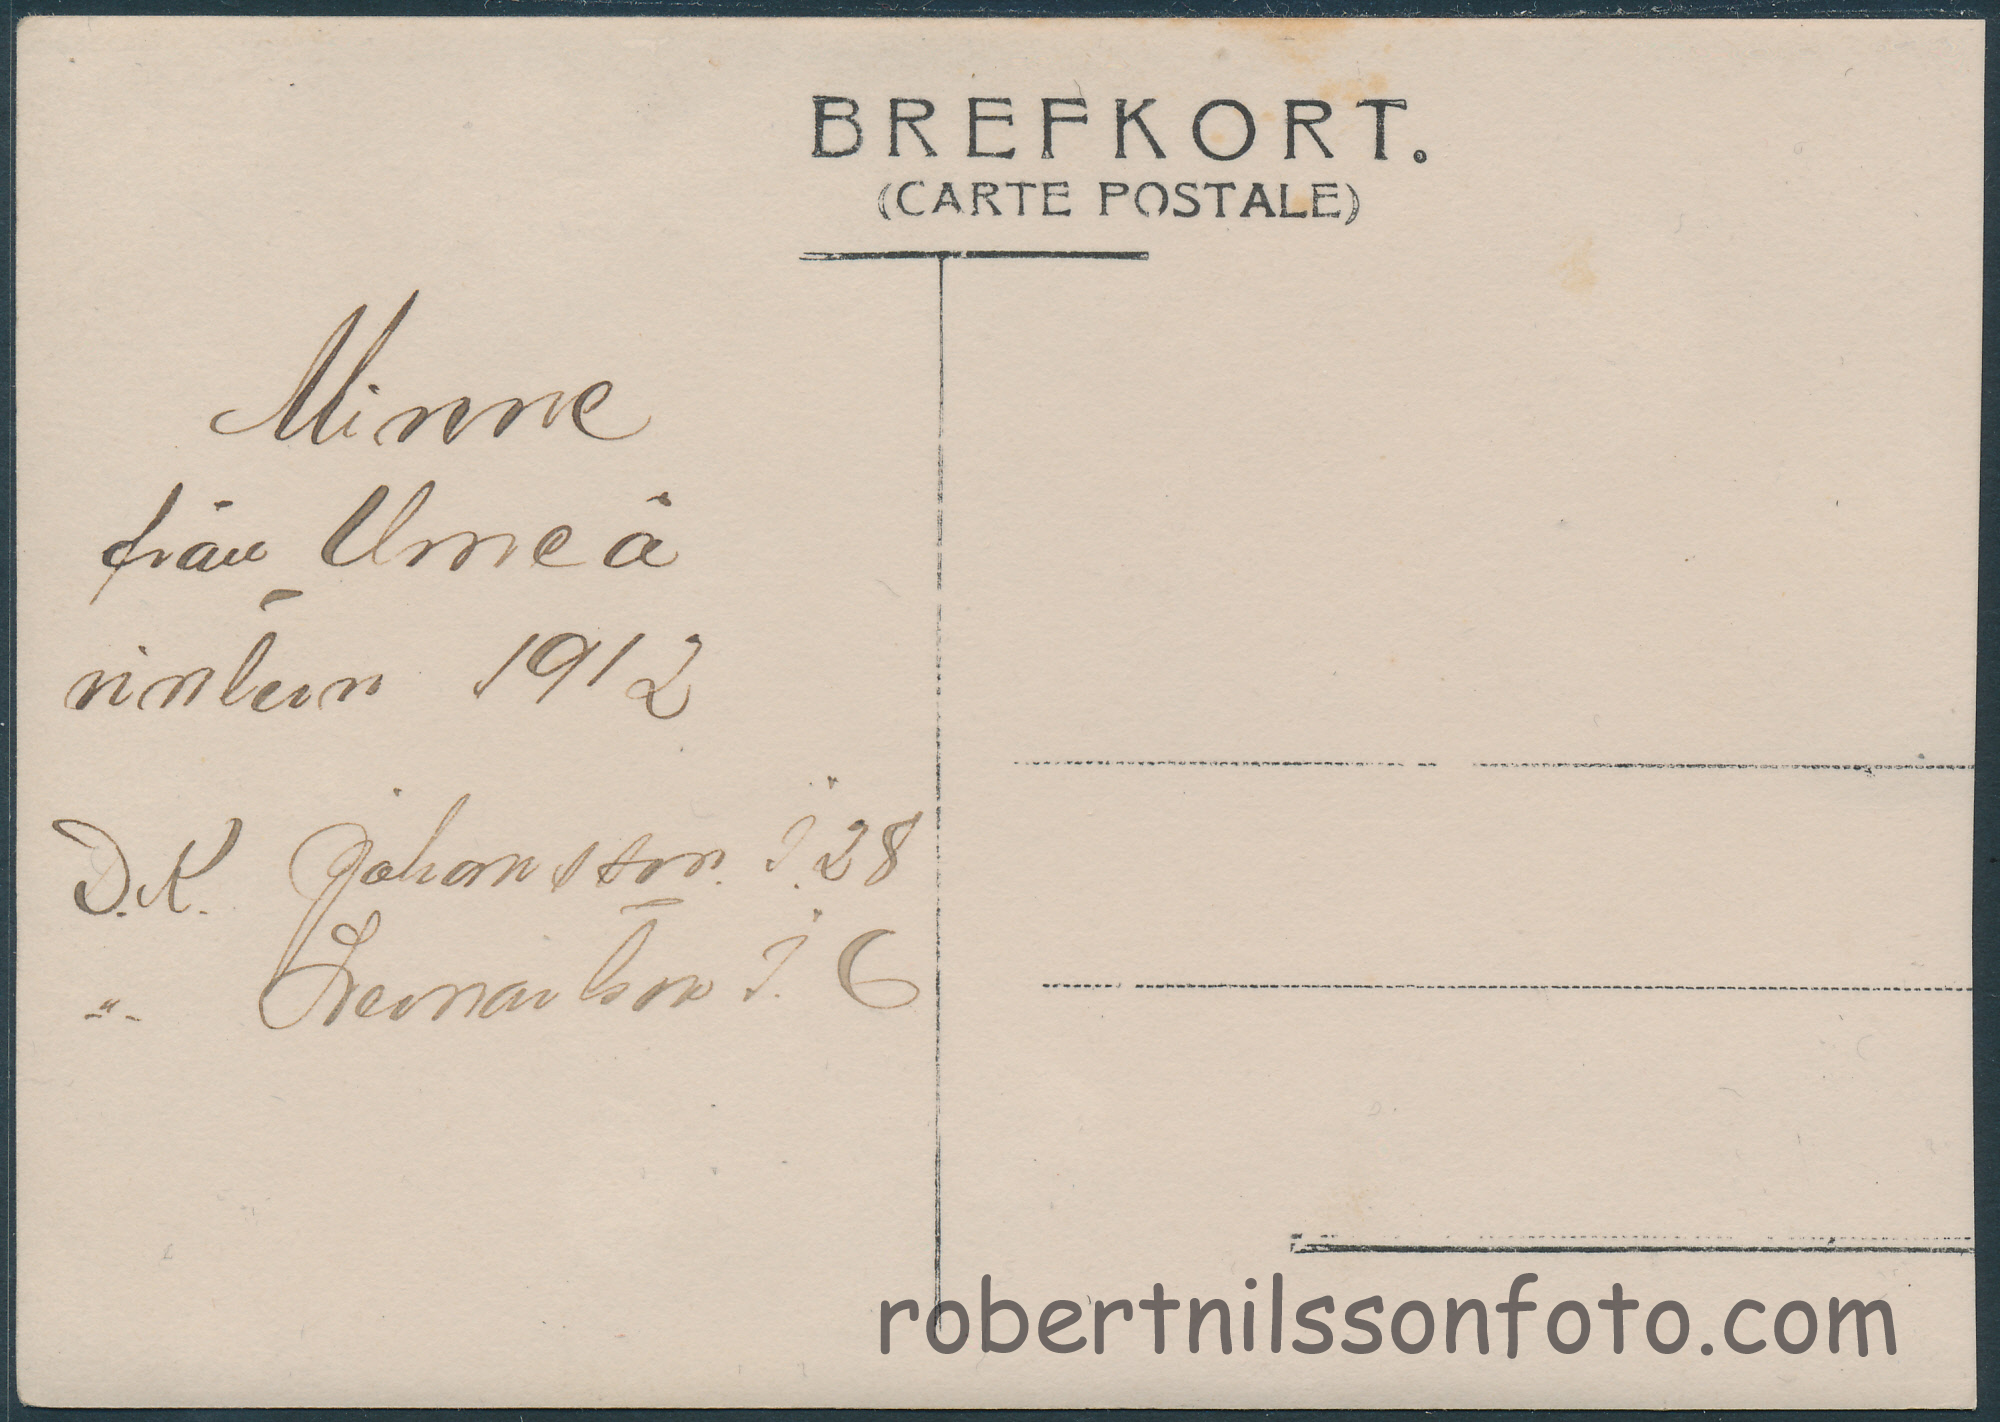 BREFKORT.
(CARTE POSTALE)
Minne
från Umeå
vintern 1912
D.K. Johansson. I. 28
-"- I. 6
robertnilssonfoto.com